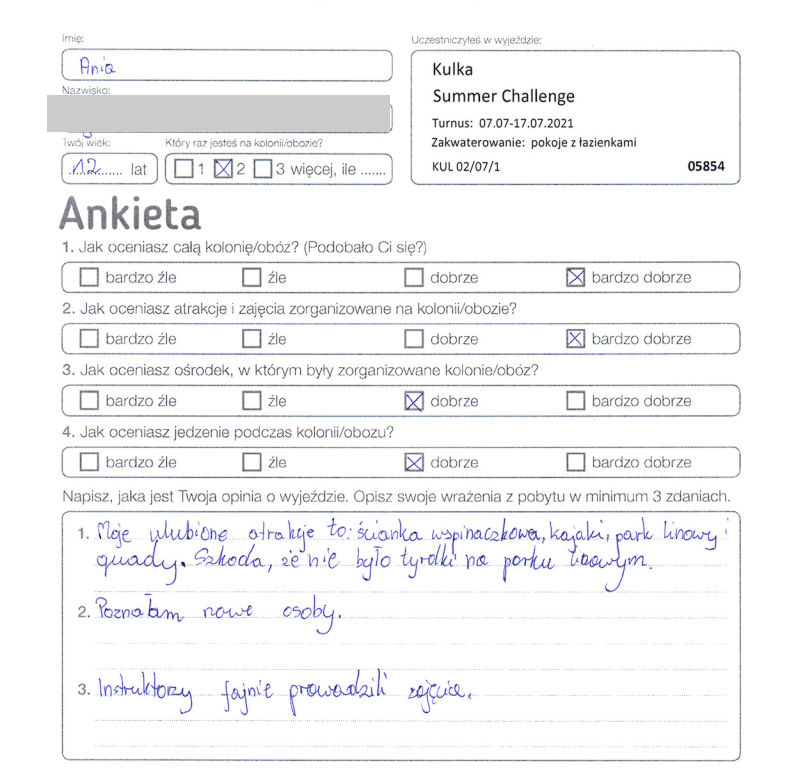 Imię:
Uczestniczyłeś w wyjeździe:
Ania
Kulka
Summer Challenge
Nazwisko:
Turnus: 07.07-17.07.2021
Twój wiek:
Który raz jesteś na kolonii/obozie?
Zakwaterowanie: pokoje z łazienkami
12 lat
1 2 3 więcej, ile .......
KUL 02/07/1 05854
Ankieta
1. Jak oceniasz całą kolonię/obóz? (Podobało Ci się?)
bardzo źle źle dobrze bardzo dobrze
2. Jak oceniasz atrakcje i zajęcia zorganizowane na kolonii/obozie?
bardzo źle źle dobrze bardzo dobrze
3. Jak oceniasz ośrodek, w którym były zorganizowane kolonie/obóz?
bardzo źle źle dobrze bardzo dobrze
4. Jak oceniasz jedzenie podczas kolonii/obozu?
bardzo źle źle dobrze bardzo dobrze
Napisz, jaka jest Twoja opinia o wyjeździe. Opisz swoje wrażenia z pobytu w minimum 3 zdaniach.
1. Moje ulubione atrakcje to: ścianka wspinaczkowa, kajaki, park linowy i
quady. Szkoda, że nie było tyrolki na parku linowym.
2. Poznałam nowe osoby.
3. Instruktorzy fajnie prowadzili zajęcia.